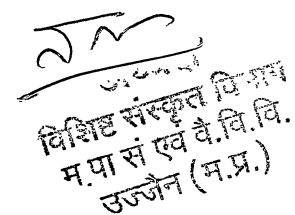 विशिष्ट संस्कृत विभाग
म.पा सं एवं वै.वि.वि.
उज्जैन (म.प्र.)